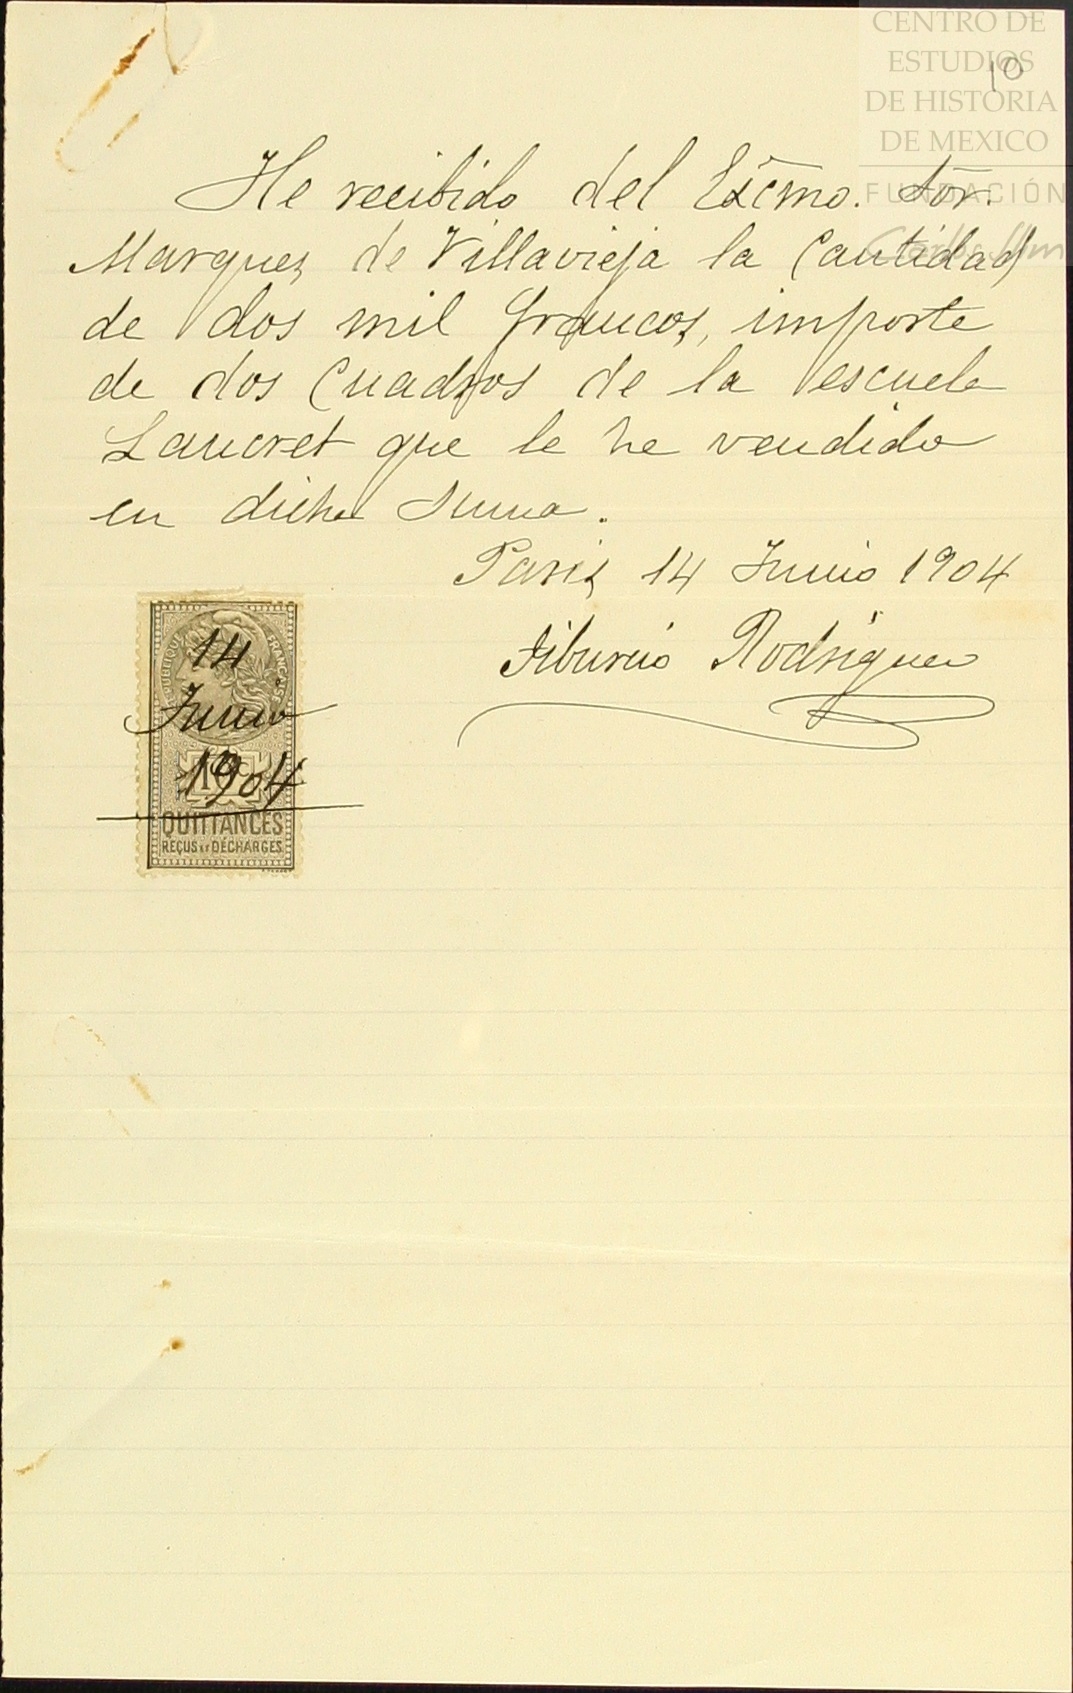 CENTRO DE
ESTUDIOS
DE HISTORIA
DE MEXICO
FUNDACIÓN
Carlos Slim
10
He recibido del Excmo. Sor.
Marquez de Villavieja la Cantidad
de dos mil francos, importe
de dos Cuadros de la escuela
Lancret que le he vendido
en dicha suma.
Paris 14 Junio 1904
Tiburcio Rodriguez
REPUBLIQUE FRANÇAISE
14
Junio
10c
1904
QUITTANCES
REÇUS ET DÉCHARGES